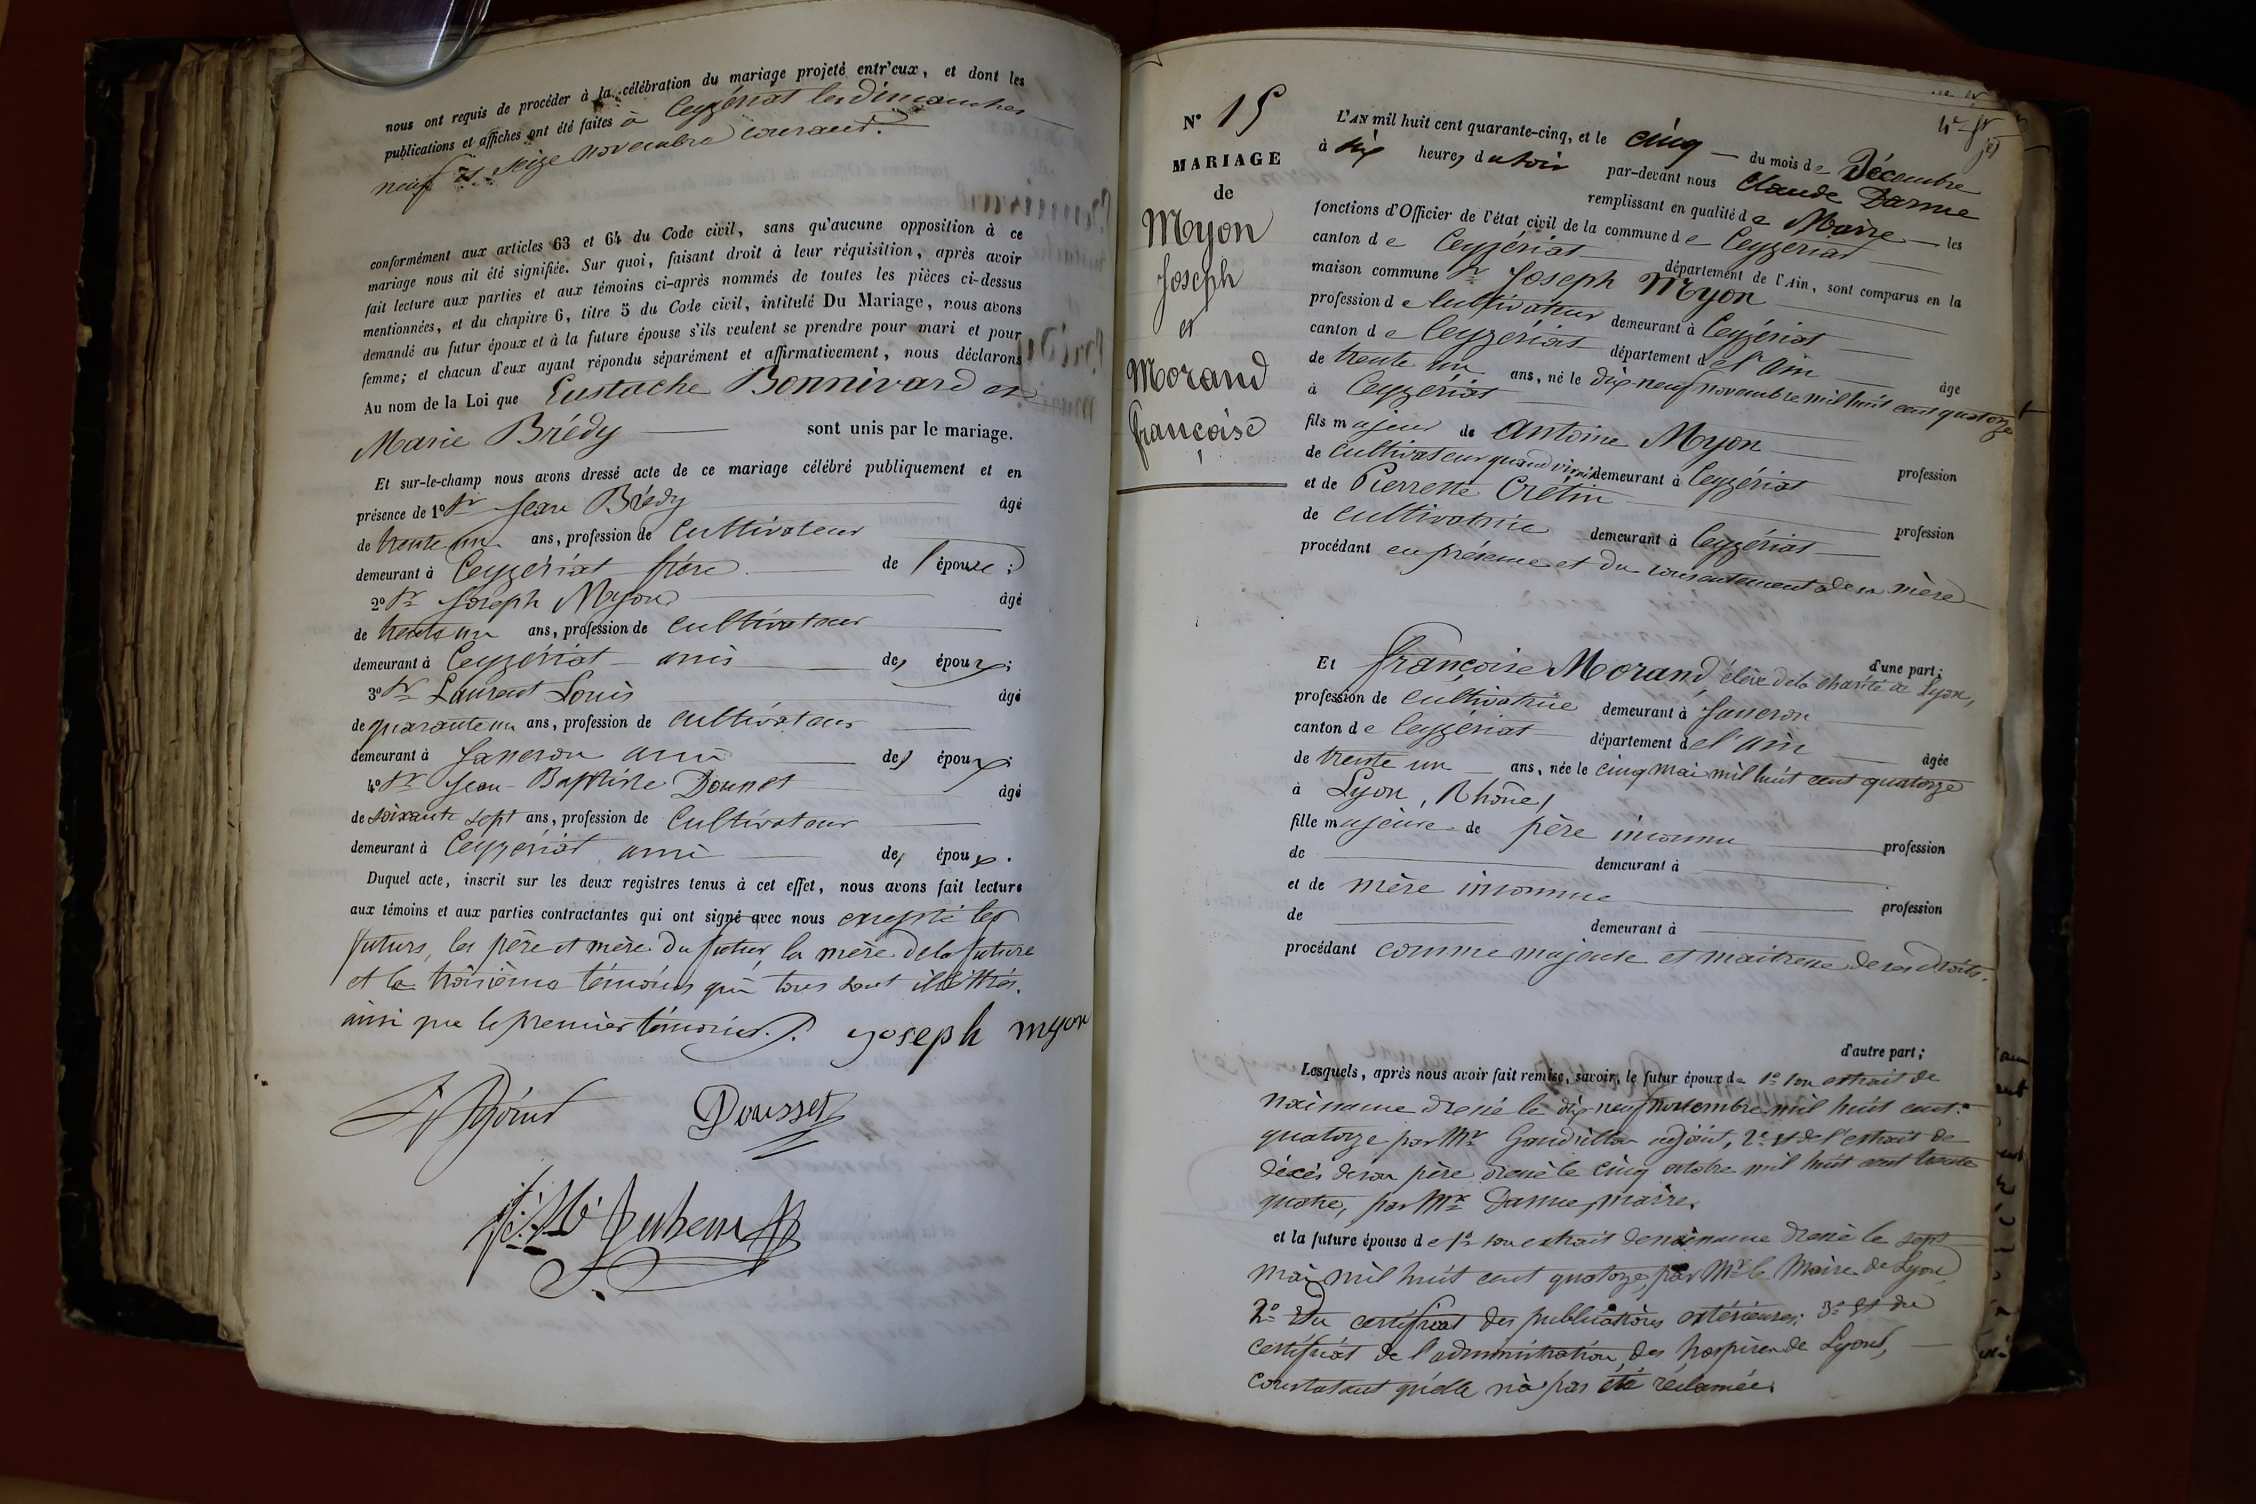 nous ont requis de procéder à la célébration du mariage projeté entr'eux, et dont les
publications et affiches ont été faites à Ceyzériat les dimanches
neuf et seize novembre courant.
conformément aux articles 63 et 64 du Code civil, sans qu'aucune opposition à ce
mariage nous ait été signifiée. Sur quoi, faisant droit à leur réquisition, après avoir
fait lecture aux parties et aux témoins ci-après nommés de toutes les pièces ci-dessus
mentionnées, et du chapitre 6, titre 5 du Code civil, intitulé Du Mariage, nous avons
demandé au futur époux et à la future épouse s'ils veulent se prendre pour mari et pour
femme; et chacun d'eux ayant répondu séparément et affirmativement, nous déclarons
Au nom de la Loi que Eustache Bonnivard et
Marie Brédy sont unis par le mariage.
Et sur-le-champ nous avons dressé acte de ce mariage célébré publiquement et en
présence de 1º Sr Jean Brédy âgé
de trente un ans, profession de cultivateur
demeurant à Ceyzériat frère de l'épouse;
2º Sr Joseph Myon âgé
de trente un ans, profession de cultivateur
demeurant à Ceyzériat amis des époux;
3º Sr Laurent Louis âgé
de quarante un ans, profession de cultivateur
demeurant à Jasseron ami des époux;
4º Sr Jean-Baptiste Dousset âgé
de soixante sept ans, profession de cultivateur
demeurant à Ceyzériat ami des époux.
Duquel acte, inscrit sur les deux registres tenus à cet effet, nous avons fait lecture
aux témoins et aux parties contractantes qui ont signé avec nous excepté les
futurs, les père et mère du futur, la mère de la future
et le troisième témoins qui tous sont illétrés.
ainsi que le premier témoin. Joseph myon
L'Adjoint Dousset
Nº 15
MARIAGE
de
Myon
Joseph
et
Morand
françoise
L'AN mil huit cent quarante-cinq, et le cinq du mois de Décembre
à six heures du soir par-devant nous Claude Darme
remplissant en qualité de Maire les
fonctions d'Officier de l'état civil de la commune de Ceyzériat
canton de Ceyzériat département de l'Ain, sont comparus en la
maison commune Sr Joseph Myon
profession de cultivateur demeurant à Ceyzériat
canton de Ceyzériat département de l'ain âgé
de trente un ans, né le dix-neuf novembre mil huit cent quatorze
à Ceyzériat
fils majeur de Antoine Myon profession
de cultivateur quand vivait demeurant à Ceyzériat
et de Pierrette Crétin profession
de cultivatrice demeurant à Ceyzériat
procédant en présence et du consentement de sa mère
d'une part;
Et françoise Morand élève de la charité de Lyon,
profession de cultivatrice demeurant à Jasseron
canton de Ceyzériat département de l'ain âgée
de trente un ans, née le cinq mai mil huit cent quatorze
à Lyon, (Rhône)
fille majeure de père inconnu profession
de demeurant à
et de mère inconnue profession
de demeurant à
procédant comme majeure et maitresse de ses droits.
d'autre part;
Lesquels, après nous avoir fait remise, savoir, le futur époux de 1º son extrait de
naissance dressé le dix-neuf novembre mil huit cent
quatorze par Mr adjoint, 2º et de l'extrait de
décès de son père dressé le cinq octobre mil huit cent trente
quatre, par Mr Darme, maire.
et la future épouse de 1º son extrait de naissance dressé le sept
mai mil huit cent quatorze, par Mr le Maire de Lyon,
2º du certificat des publications extérieures; 3º et du
certificat de l'administration des hospices de Lyon,
constatant qu'elle n'a pas été réclamée.